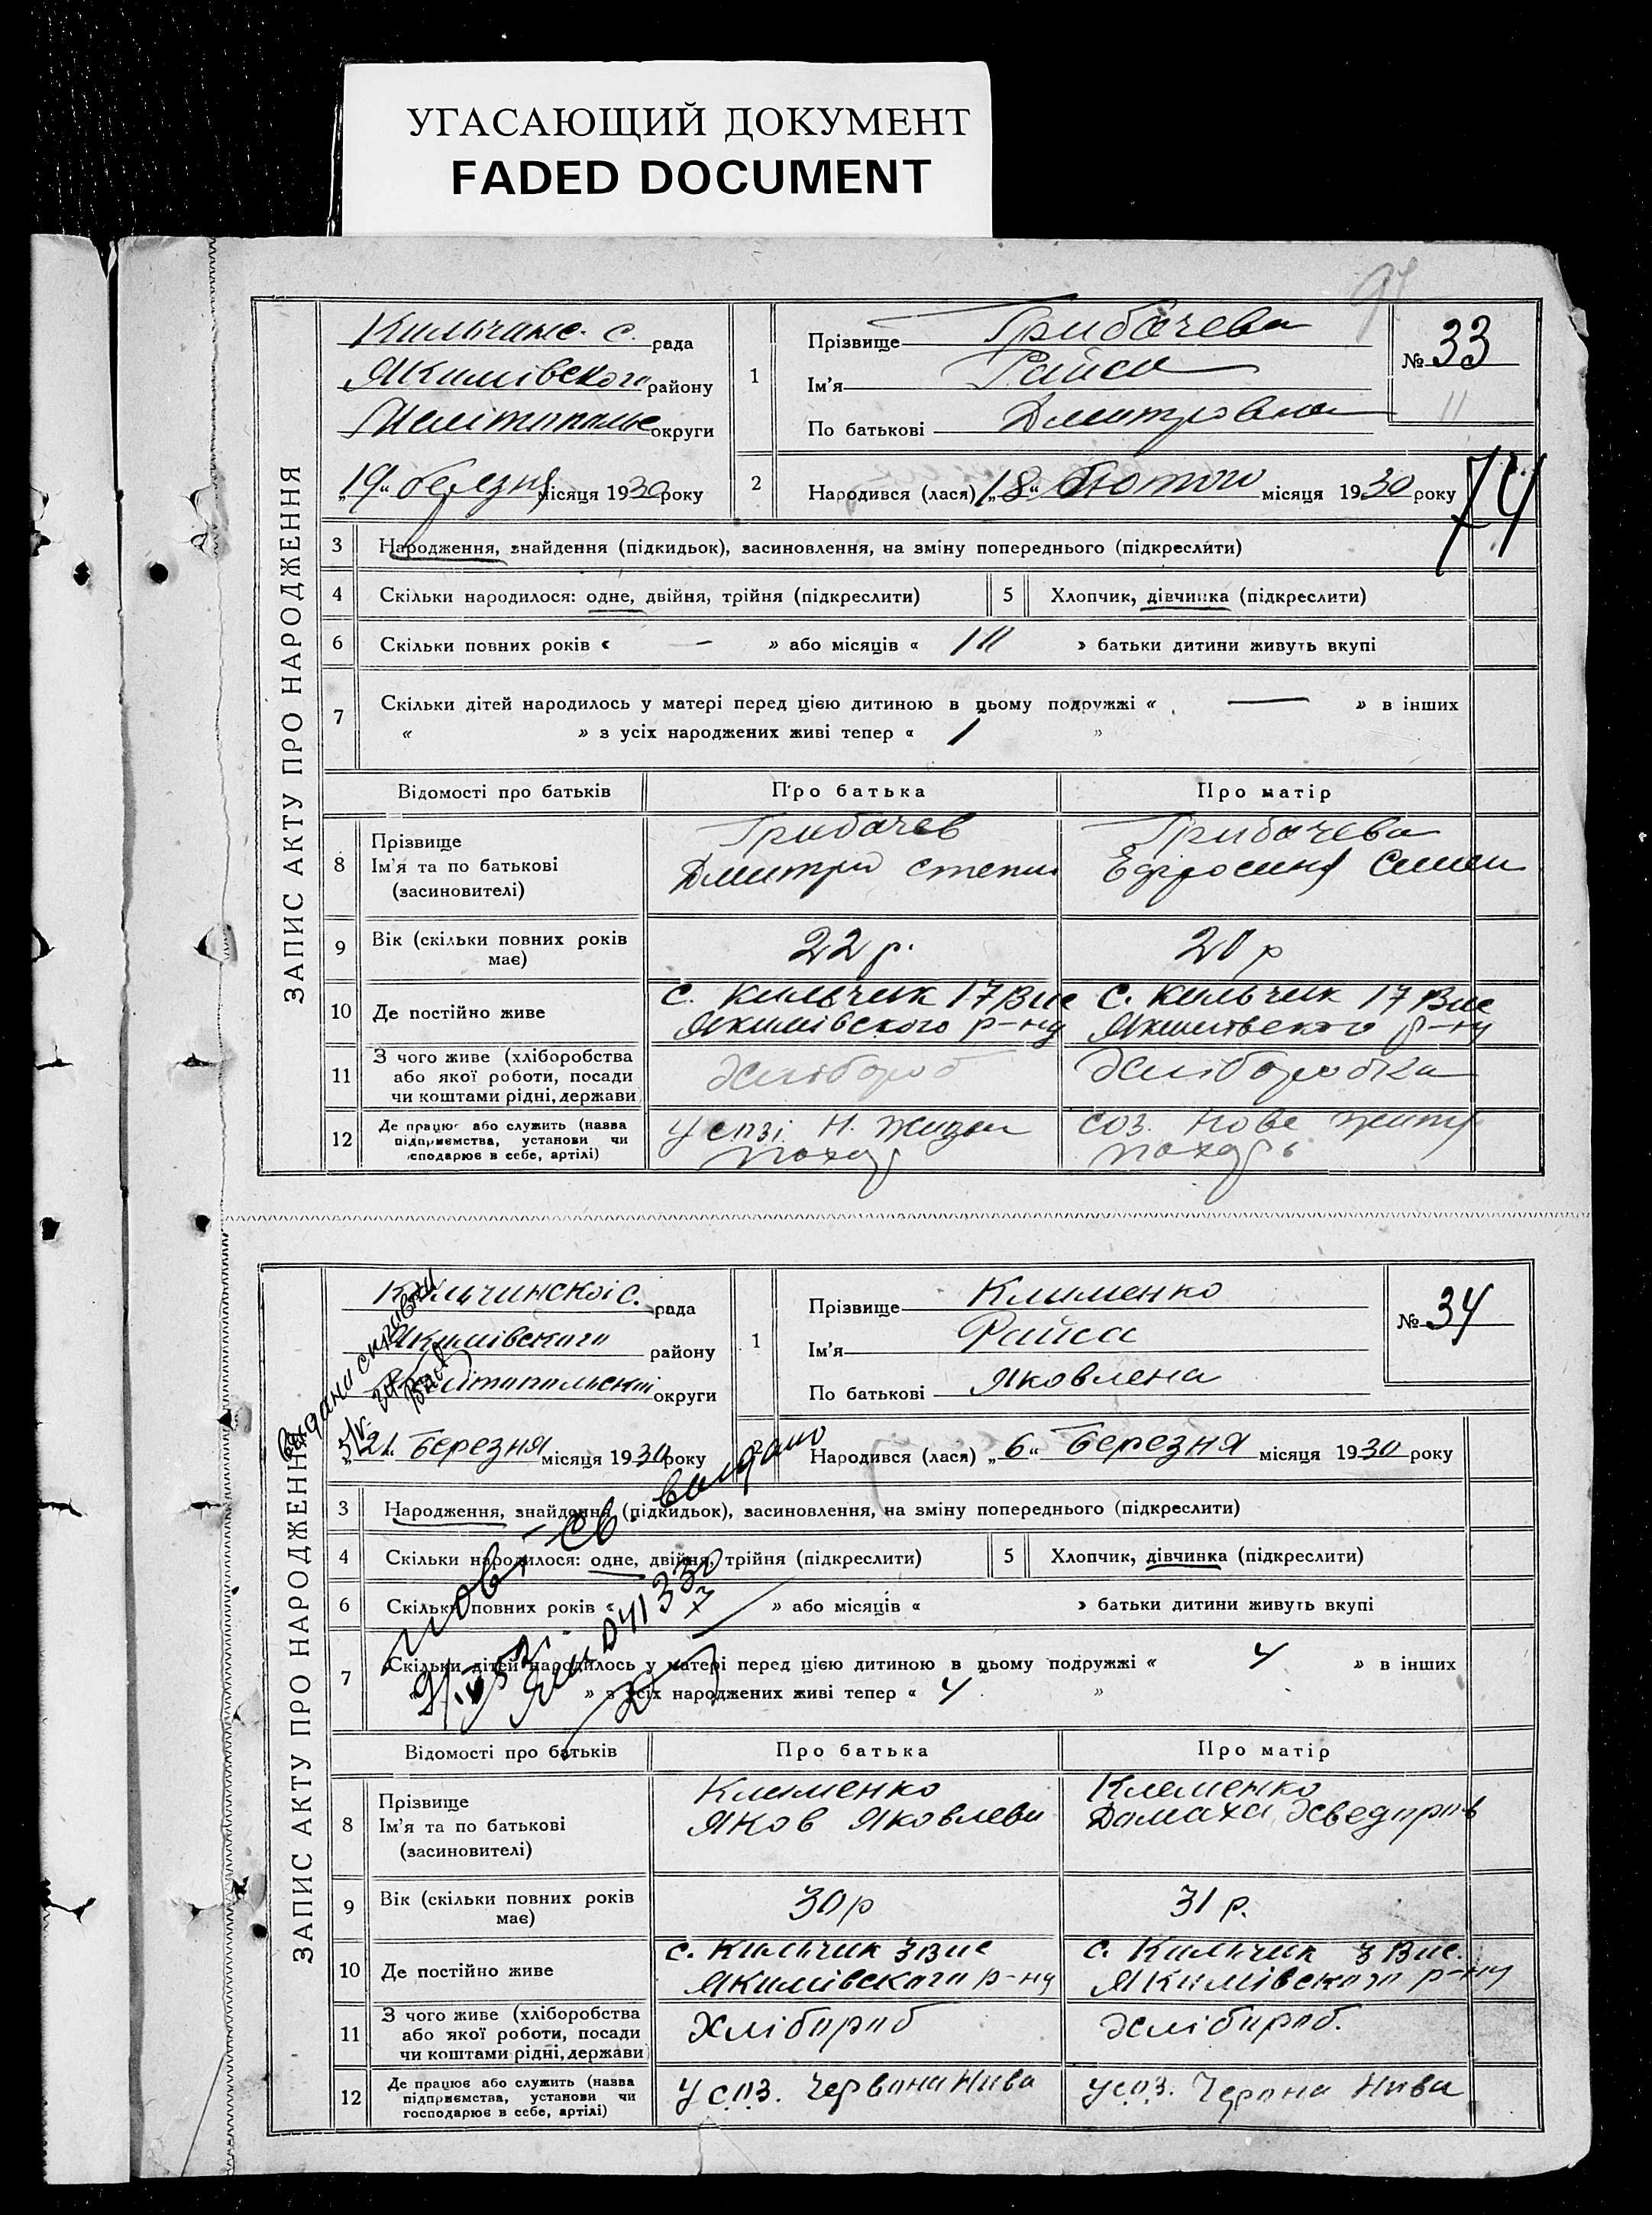 УГАСАЮЩИЙ ДОКУМЕНТ
FADED DOCUMENT
ЗАПИС АКТУ ПРО НАРОДЖЕННЯ
Кильчанс. с. рада
Якимівского району
Мелітопольс округи
„19“ березня місяця 1930 року
1 Прізвище Грибачева
Ім'я Раиса
По батькові Дмитровна
№ 33
11
74
2 Народився (лася) „18“ Лютого місяця 1930 року
3 Народження, знайдення (підкидьок), засиновлення, на зміну попереднього (підкреслити)
4 Скільки народилося: одне, двійня, трійня (підкреслити) 5 Хлопчик, дівчинка (підкреслити)
6 Скільки повних років « — » або місяців « 11 » батьки дитини живуть вкупі
7 Скільки дітей народилось у матері перед цією дитиною в цьому подружжі « — » в інших
« » з усіх народжених живі тепер « 1 »
Відомості про батьків Про батька Про матір
8 Прізвище Ім'я та по батькові (засновителі) Грибачев Грибачева
Дмитрий степан Ефросиня Симеи
9 Вік (скільки повних років має) 22 р. 20 р
10 Де постійно живе с. Кильчик 17 Вис с. Кильчик 17 Вис
Якимівского р-ну Якимівского р-ну
11 З чого живе (хліборобства або якої роботи, посади чи коштами рідні, держави Хлібороб Хліборобка
12 Де працює або служить (назва підприємства, установи чи господарює в себе, артілі) У спзі Н. Жизни соз. Нове житт
ЗАПИС АКТУ ПРО НАРОДЖЕННЯ
Кильчинскоі с. рада
Якимівского району
Мелітопольскиі округи
„21“ Березня місяця 1930 року
1 Прізвище Клименко
Ім'я Раиса
По батькові Яковлена
№ 34
Народився (лася) „6“ Березня місяця 1930 року
3 Народження, знайдення (підкидьок), засиновлення, на зміну попереднього (підкреслити)
4 Скільки народилося: одне, двійня, трійня (підкреслити) 5 Хлопчик, дівчинка (підкреслити)
6 Скільки повних років « » або місяців « » батьки дитини живуть вкупі
7 Скільки дітей народилось у матері перед цією дитиною в цьому подружжі « 4 » в інших
» з усіх народжених живі тепер « 4 »
выдано
Відомості про батьків Про батька Про матір
8 Прізвище Ім'я та по батькові (засиновителі) Клименко Клеменко
Яков Яковлеви Домаха Хведоров
9 Вік (скільки повних років має) 30 р 31 р.
10 Де постійно живе с. Кильчик 3 Вис с. Кильчик 3 Вис.
Якимівского р-ну Якимівского р-ну
11 З чого живе (хліборобства або якої роботи, посади чи коштами рідні, держави Хлібороб Хлібороб.
12 Де працює або служить (назва підприємства, установи чи господарює в себе, артілі) У с.п.з. Червона Нива У с.п.з. Черона Нива